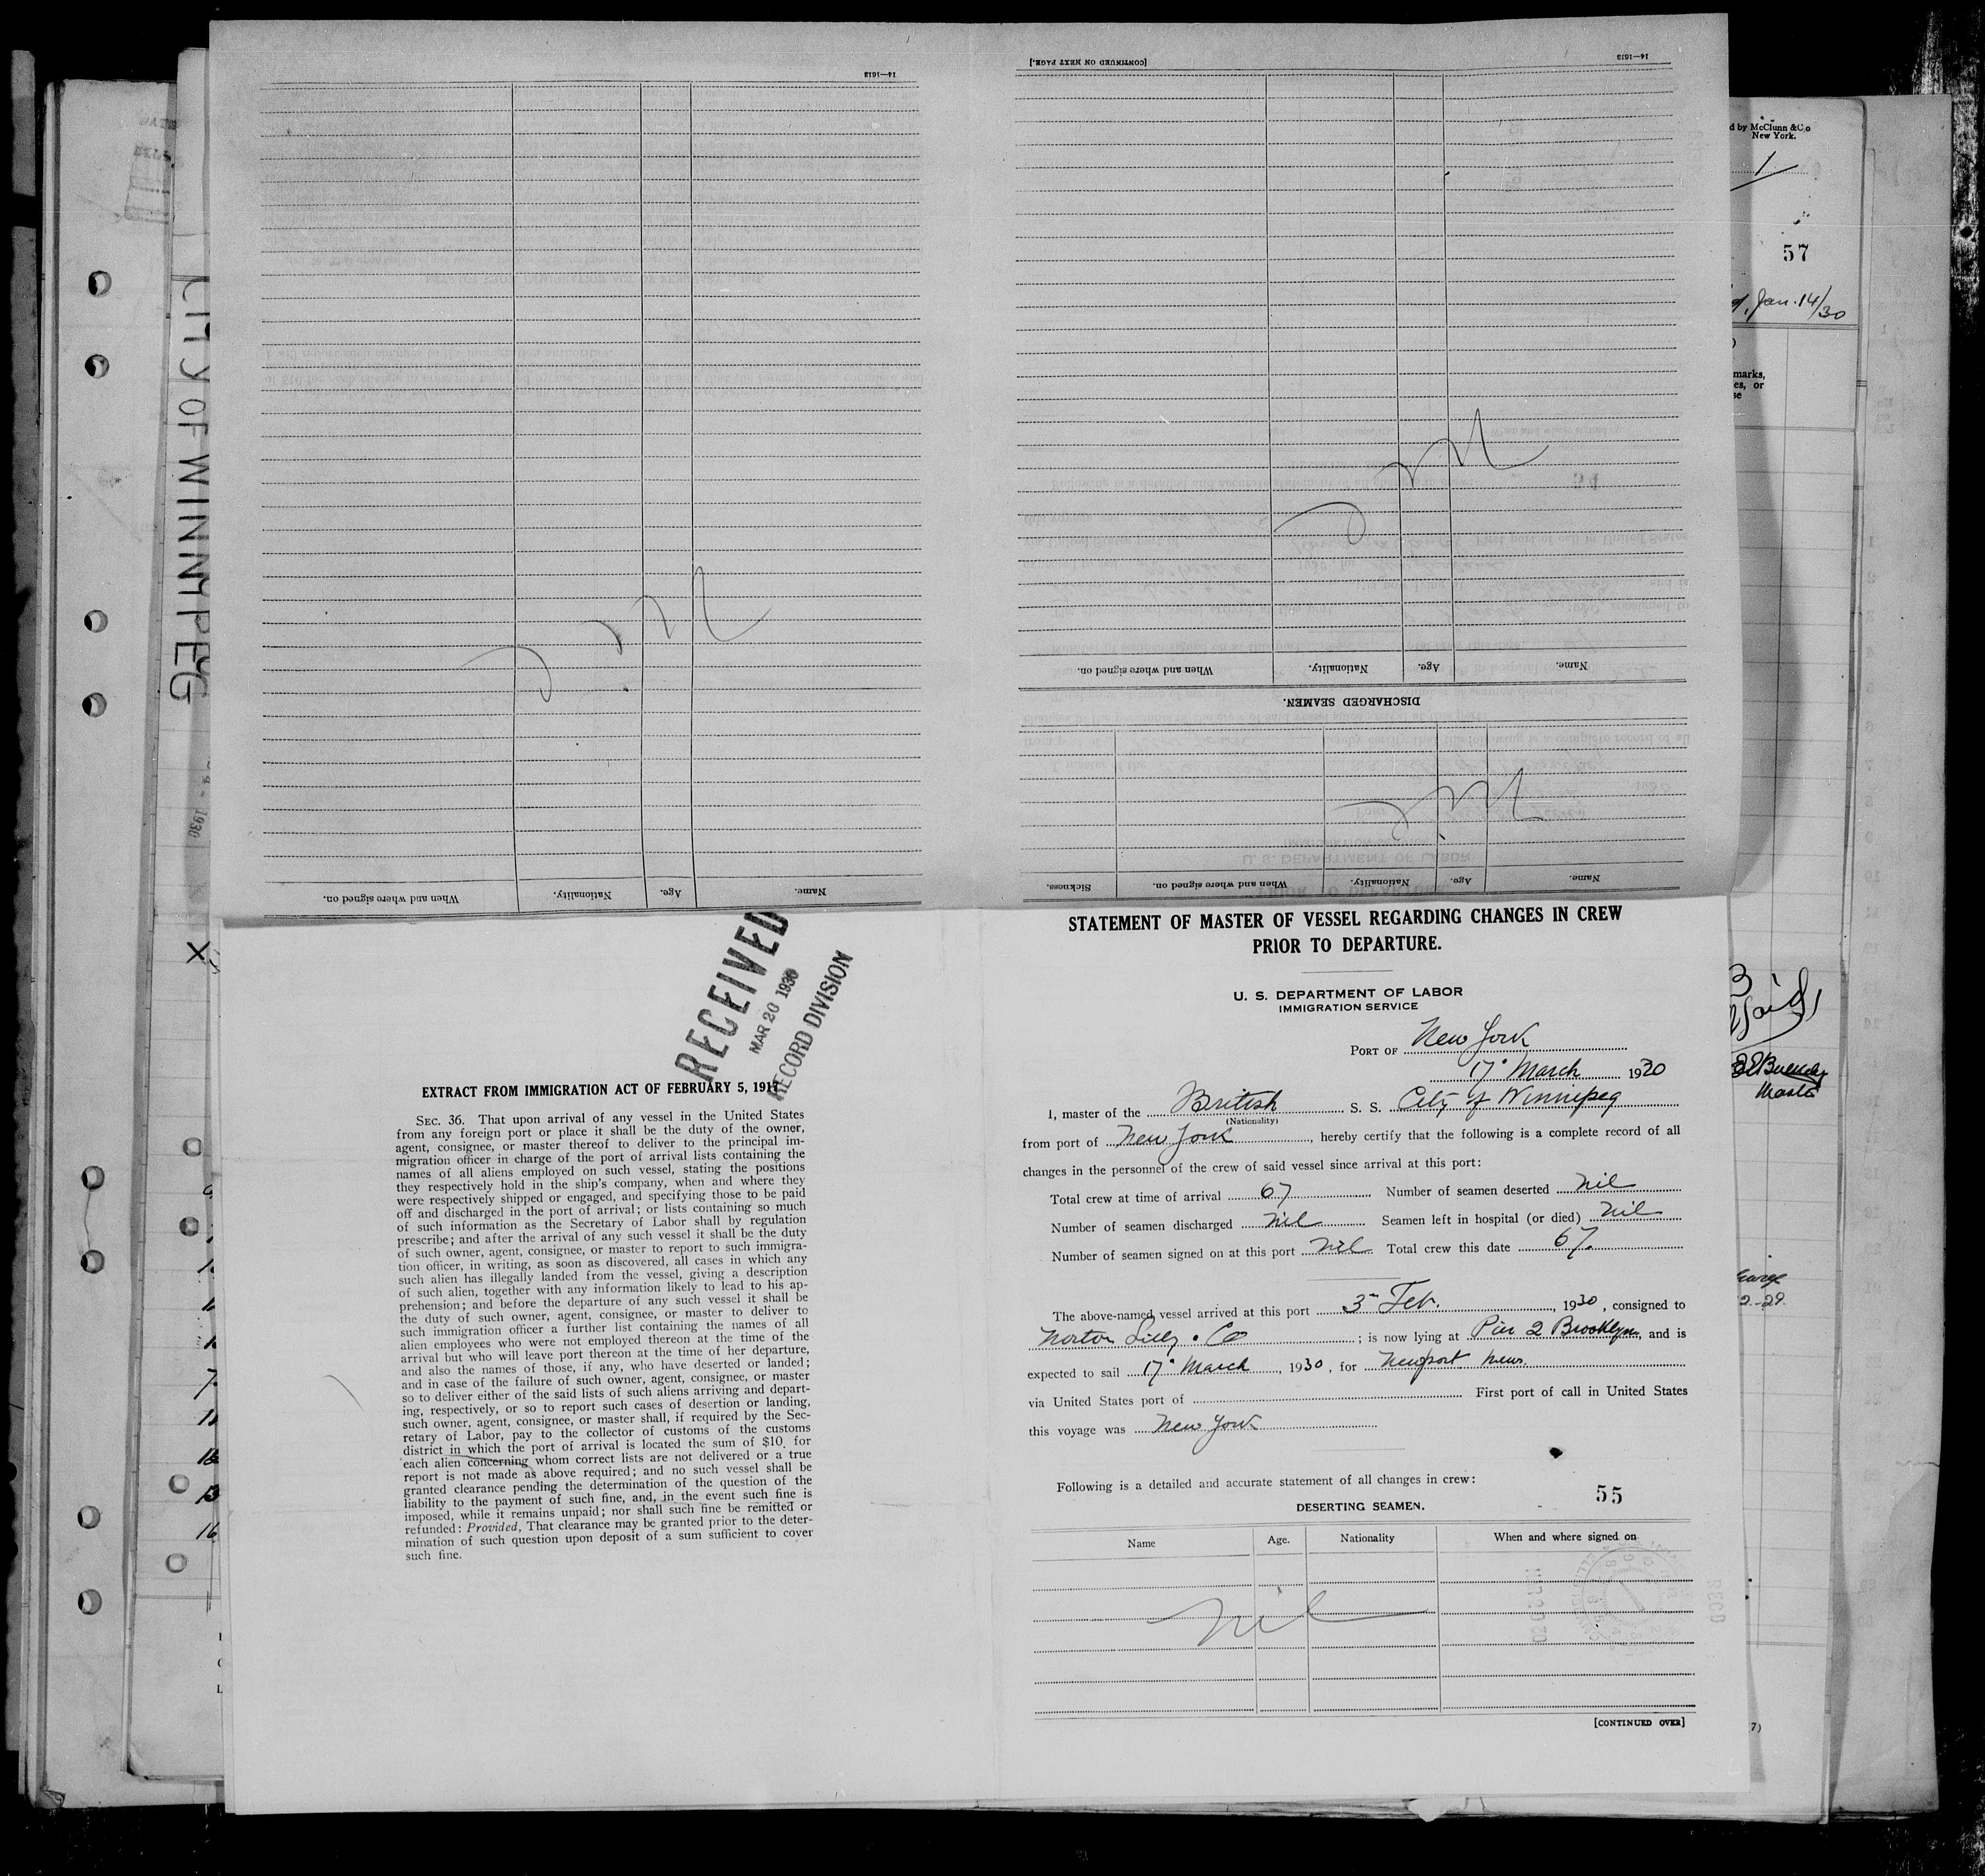 14—1613
When and where signed on.
Nationality.
Age.
Name.
[CONTINUED ON NEXT PAGE.]
14—1613
When and where signed on.
Nationality.
Age.
Name.
DISCHARGED SEAMEN.
Sickness.
When and where signed on.
Nationality.
Age.
Name.
CITY OF WINNIPEG
1930
d by McClunn & Co
New York.
1
57
Jan. 14/30
marks,
es, or
se
RECEIVED
MAR 20 1930
RECORD DIVISION
EXTRACT FROM IMMIGRATION ACT OF FEBRUARY 5, 1917
SEC. 36. That upon arrival of any vessel in the United States
from any foreign port or place it shall be the duty of the owner,
agent, consignee, or master thereof to deliver to the principal im-
migration officer in charge of the port of arrival lists containing the
names of all aliens employed on such vessel, stating the positions
they respectively hold in the ship's company, when and where they
were respectively shipped or engaged, and specifying those to be paid
off and discharged in the port of arrival; or lists containing so much
of such information as the Secretary of Labor shall by regulation
prescribe; and after the arrival of any such vessel it shall be the duty
of such owner, agent, consignee, or master to report to such immigra-
tion officer, in writing, as soon as discovered, all cases in which any
such alien has illegally landed from the vessel, giving a description
of such alien, together with any information likely to lead to his ap-
prehension; and before the departure of any such vessel it shall be
the duty of such owner, agent, consignee, or master to deliver to
such immigration officer a further list containing the names of all
alien employees who were not employed thereon at the time of the
arrival but who will leave port thereon at the time of her departure,
and also the names of those, if any, who have deserted or landed;
and in case of the failure of such owner, agent, consignee, or master
so to deliver either of the said lists of such aliens arriving and depart-
ing, respectively, or so to report such cases of desertion or landing,
such owner, agent, consignee, or master shall, if required by the Sec-
retary of Labor, pay to the collector of customs of the customs
district in which the port of arrival is located the sum of $10 for
each alien concerning whom correct lists are not delivered or a true
report is not made as above required; and no such vessel shall be
granted clearance pending the determination of the question of the
liability to the payment of such fine, and, in the event such fine is
imposed, while it remains unpaid; nor shall such fine be remitted or
refunded: Provided, That clearance may be granted prior to the deter-
mination of such question upon deposit of a sum sufficient to cover
such fine.
STATEMENT OF MASTER OF VESSEL REGARDING CHANGES IN CREW
PRIOR TO DEPARTURE.
U. S. DEPARTMENT OF LABOR
IMMIGRATION SERVICE
PORT OF New York
17° March 1930
I, master of the British S. S. City of Winnipeg
(Nationality)
from port of New York, hereby certify that the following is a complete record of all
changes in the personnel of the crew of said vessel since arrival at this port:
Total crew at time of arrival 67 Number of seamen deserted nil
Number of seamen discharged nil Seamen left in hospital (or died) nil
Number of seamen signed on at this port nil Total crew this date 67.
The above-named vessel arrived at this port 3 Feb., 1930, consigned to
Norton Lilly & Co; is now lying at Pier 2 Brooklyn, and is
expected to sail 17° March, 1930, for Newport News.
via United States port of First port of call in United States
this voyage was New York
Following is a detailed and accurate statement of all changes in crew:
55
DESERTING SEAMEN.
Name Age. Nationality When and where signed on
nil
[CONTINUED OVER]